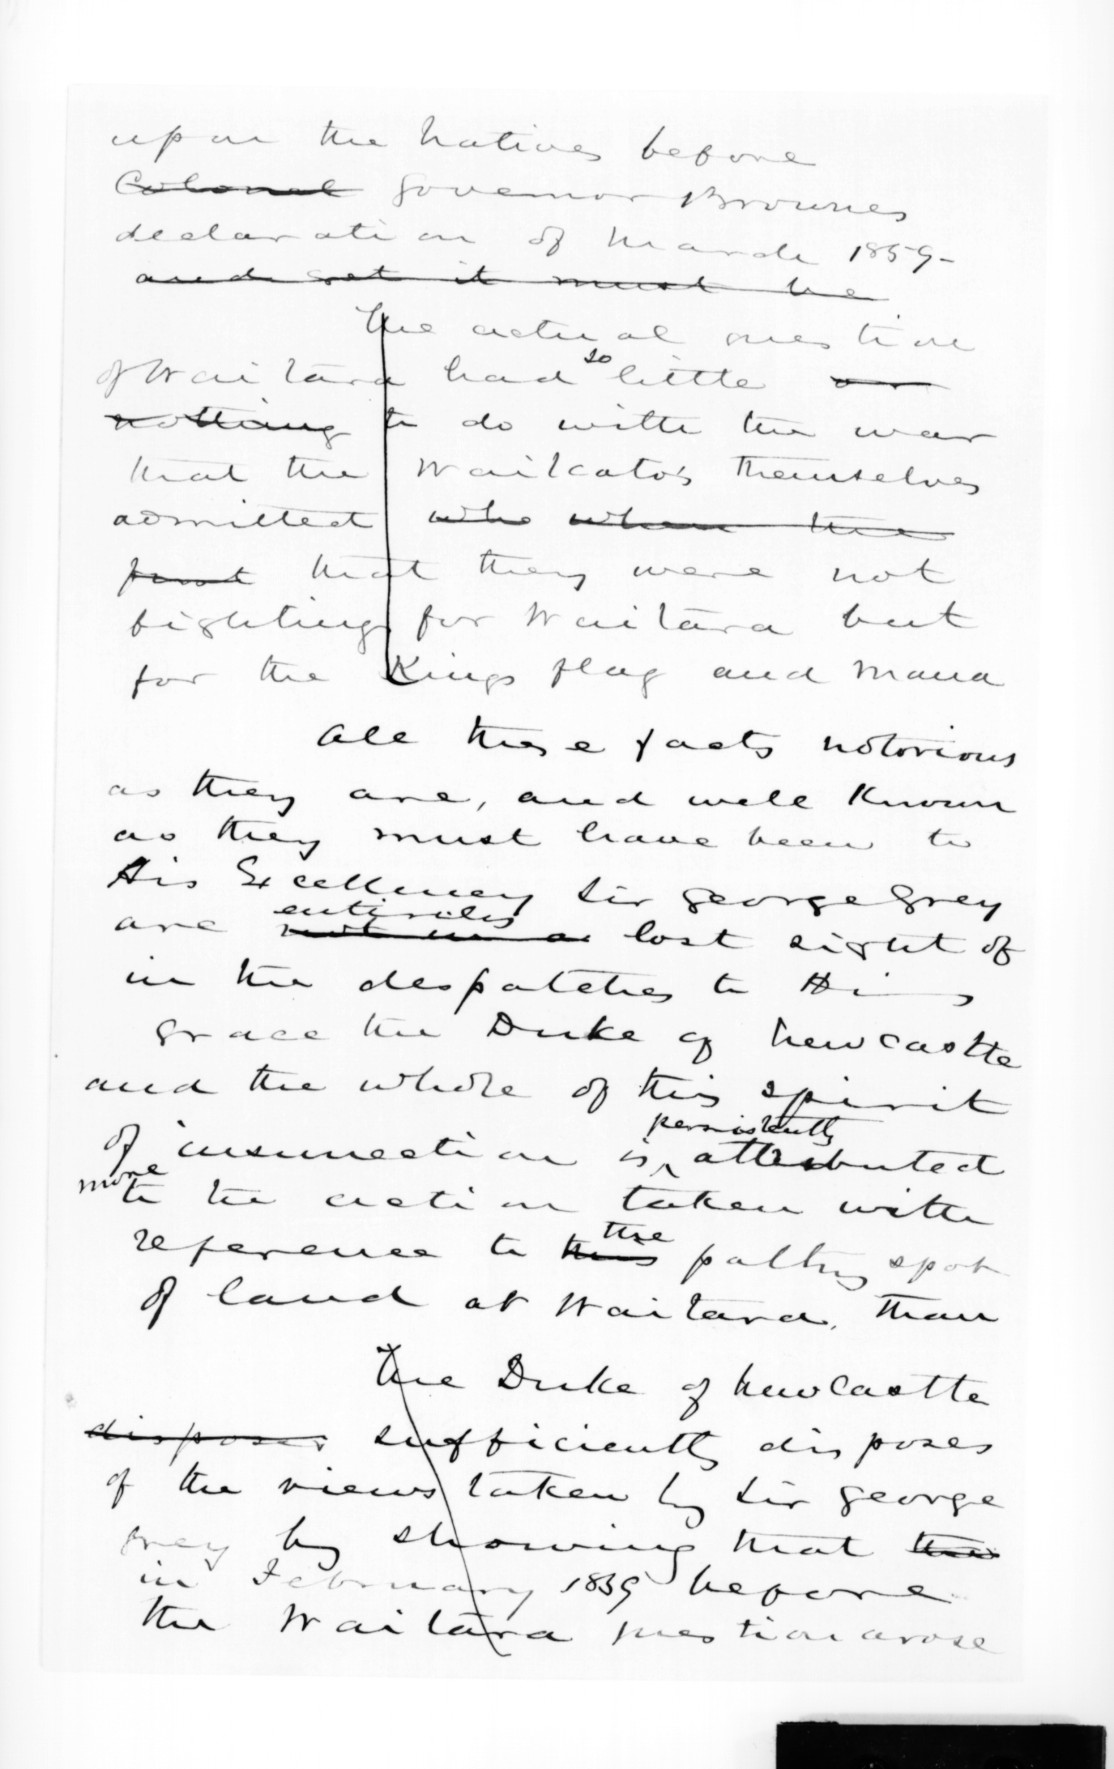 upon the Natives before
Colonel Governor Brownes
declaration of March 1859-
and yet it must be
The actual question
of Waitara had so little or
nothing to do with the war
that the Waikato's themselves
admitted who when the
that they were not
fighting for Waitara but
for the Kings flag and Mana
All these facts notorious
as they are, and well Known
as they must have been to
His Excellency Sir George Grey
are not in a entirely lost sight of
in the despatches to His
Grace the Duke of Newcastle
and the whole of this spirit
of insurrection is persistently attributed
more to the action taken with
reference to this the paltry spot
of land at Waitara, than
The Duke of NewCastle
disposes sufficiently disposes
of the views taken by Sir George
Grey by showing that the
in February 1859 before
the Waitara question arose